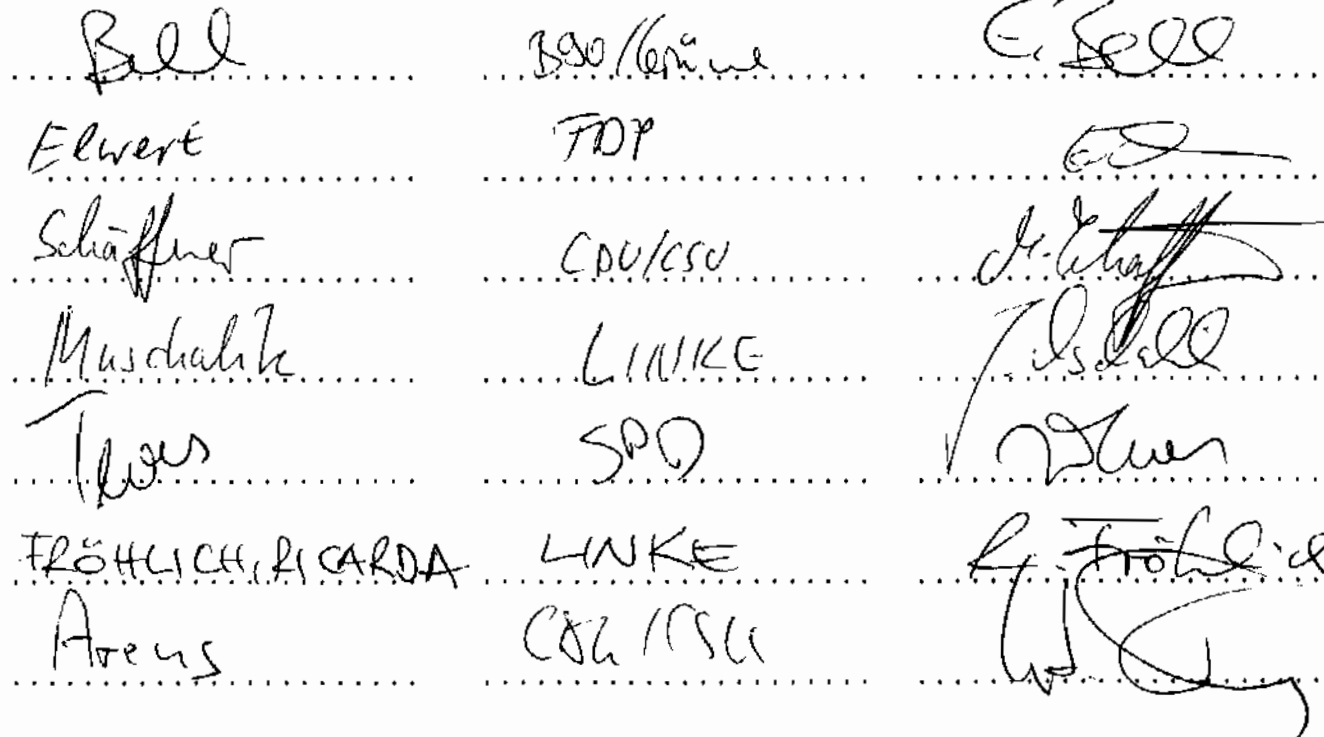 Bell B90/Grüne E. Bell
Elwert FDP
Schäffner CDU/CSU
Muschalik LINKE
Thews SPD
FRÖHLICH, RICARDA LINKE R. Fröhlich
Arens CDU/CSU